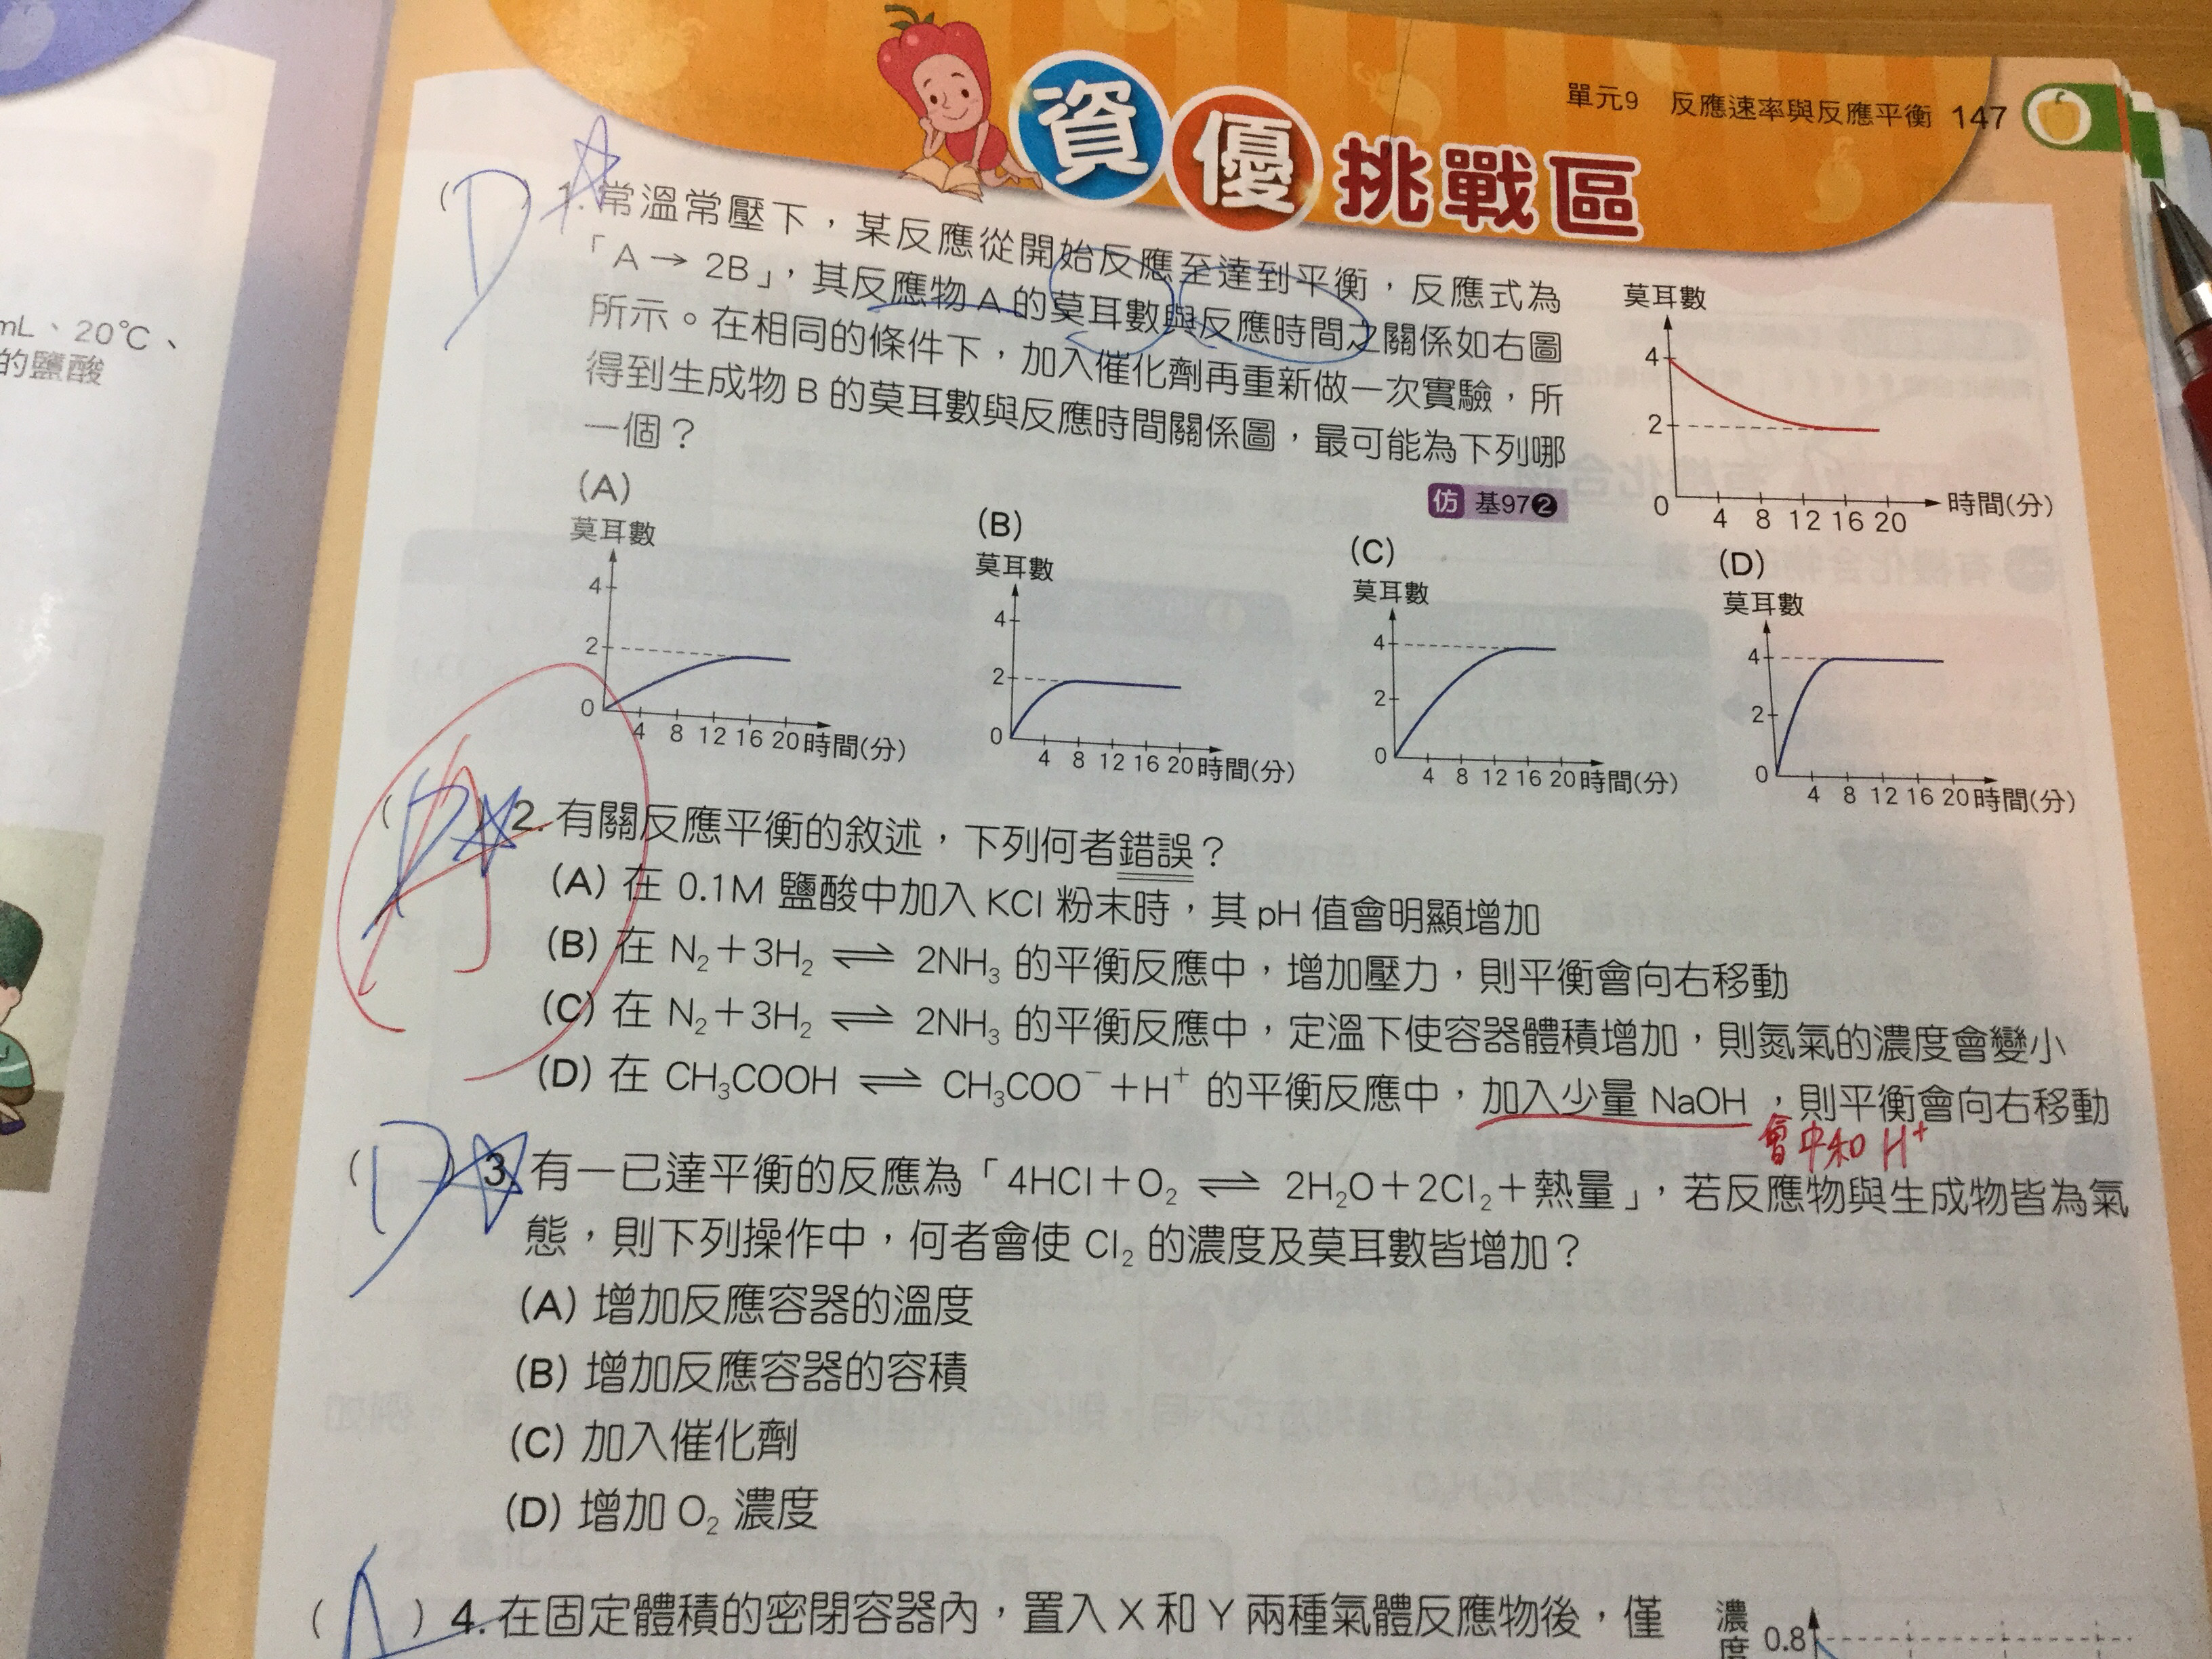 單元9 反應速率與反應平衡 147
資優挑戰區
mL、20℃、
的鹽酸
( D ) 1. 常溫常壓下，某反應從開始反應至達到平衡，反應式為
「A → 2B」，其反應物 A 的莫耳數與反應時間之關係如右圖
所示。在相同的條件下，加入催化劑再重新做一次實驗，所
得到生成物 B 的莫耳數與反應時間關係圖，最可能為下列哪
一個？
仿 基97❷
莫耳數
4
2
0
4 8 12 16 20 時間(分)
(A)
莫耳數
4
2
0
4 8 12 16 20 時間(分)
(B)
莫耳數
4
2
0
4 8 12 16 20 時間(分)
(C)
莫耳數
4
2
0
4 8 12 16 20 時間(分)
(D)
莫耳數
4
2
0
4 8 12 16 20 時間(分)
( ) 2. 有關反應平衡的敘述，下列何者錯誤？
(A) 在 0.1M 鹽酸中加入 KCl 粉末時，其 pH 值會明顯增加
(B) 在 N₂＋3H₂ ⇌ 2NH₃ 的平衡反應中，增加壓力，則平衡會向右移動
(C) 在 N₂＋3H₂ ⇌ 2NH₃ 的平衡反應中，定溫下使容器體積增加，則氮氣的濃度會變小
(D) 在 CH₃COOH ⇌ CH₃COO⁻＋H⁺ 的平衡反應中，加入少量 NaOH，則平衡會向右移動
會中和 H⁺
( D ) 3. 有一已達平衡的反應為「4HCl＋O₂ ⇌ 2H₂O＋2Cl₂＋熱量」，若反應物與生成物皆為氣
態，則下列操作中，何者會使 Cl₂ 的濃度及莫耳數皆增加？
(A) 增加反應容器的溫度
(B) 增加反應容器的容積
(C) 加入催化劑
(D) 增加 O₂ 濃度
( A ) 4. 在固定體積的密閉容器內，置入 X 和 Y 兩種氣體反應物後，僅
濃度
0.8